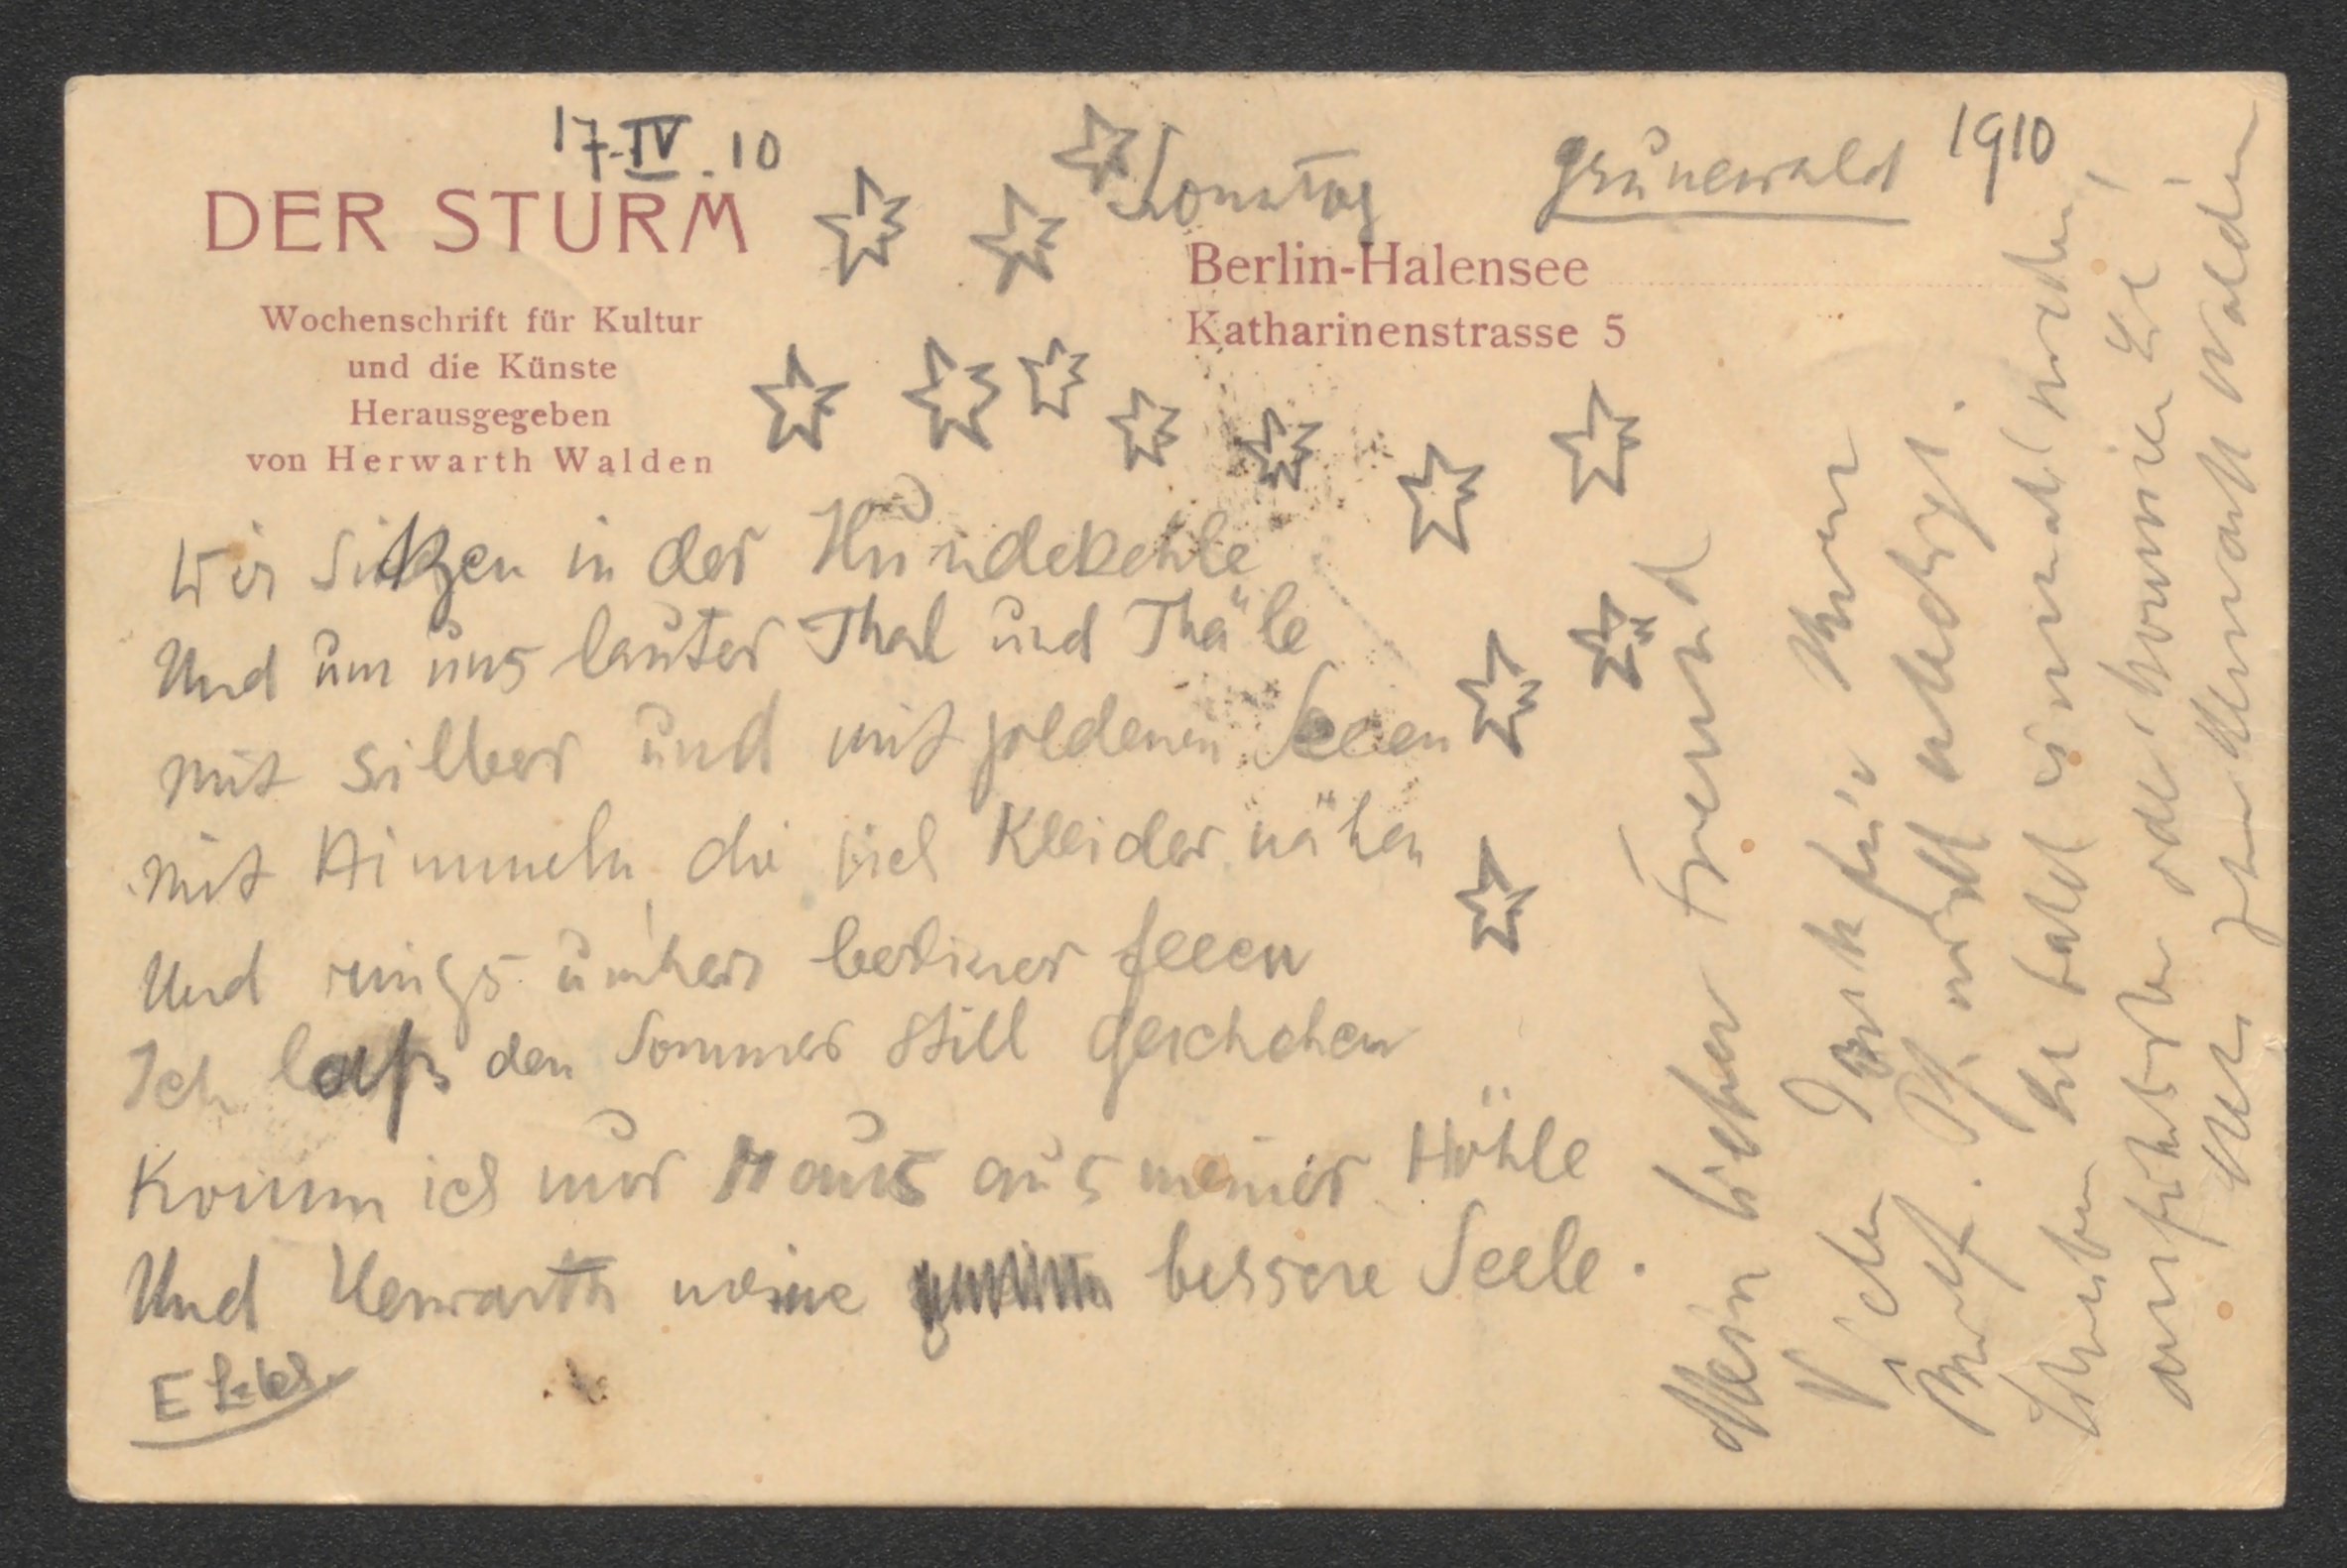 17.IV.10
Sonntag
Grünewald 1910
DER STURM
Wochenschrift für Kultur
und die Künste
Herausgegeben
von Herwarth Walden
Berlin-Halensee
Katharinenstrasse 5
Wir sitzen in der Hundekehle
Und um uns lauter Thal und Thäle
Mit silber und mit goldenen Seeen
Mit Himmeln, die viel Kleider nähen
Und rings umher berliner Feeen
Ich laß den Sommer still geschehen
Komm ich nur raus aus meiner Höhle
Und Herwarth meine bessere Seele.
Mein lieber Freund
Vielen Dank für Ihren
Brief. Pf. wird erledigt.
Schreiben Sie bald einmal
ausführlicher oder kommen Sie!
Ihr Herwarth Walden